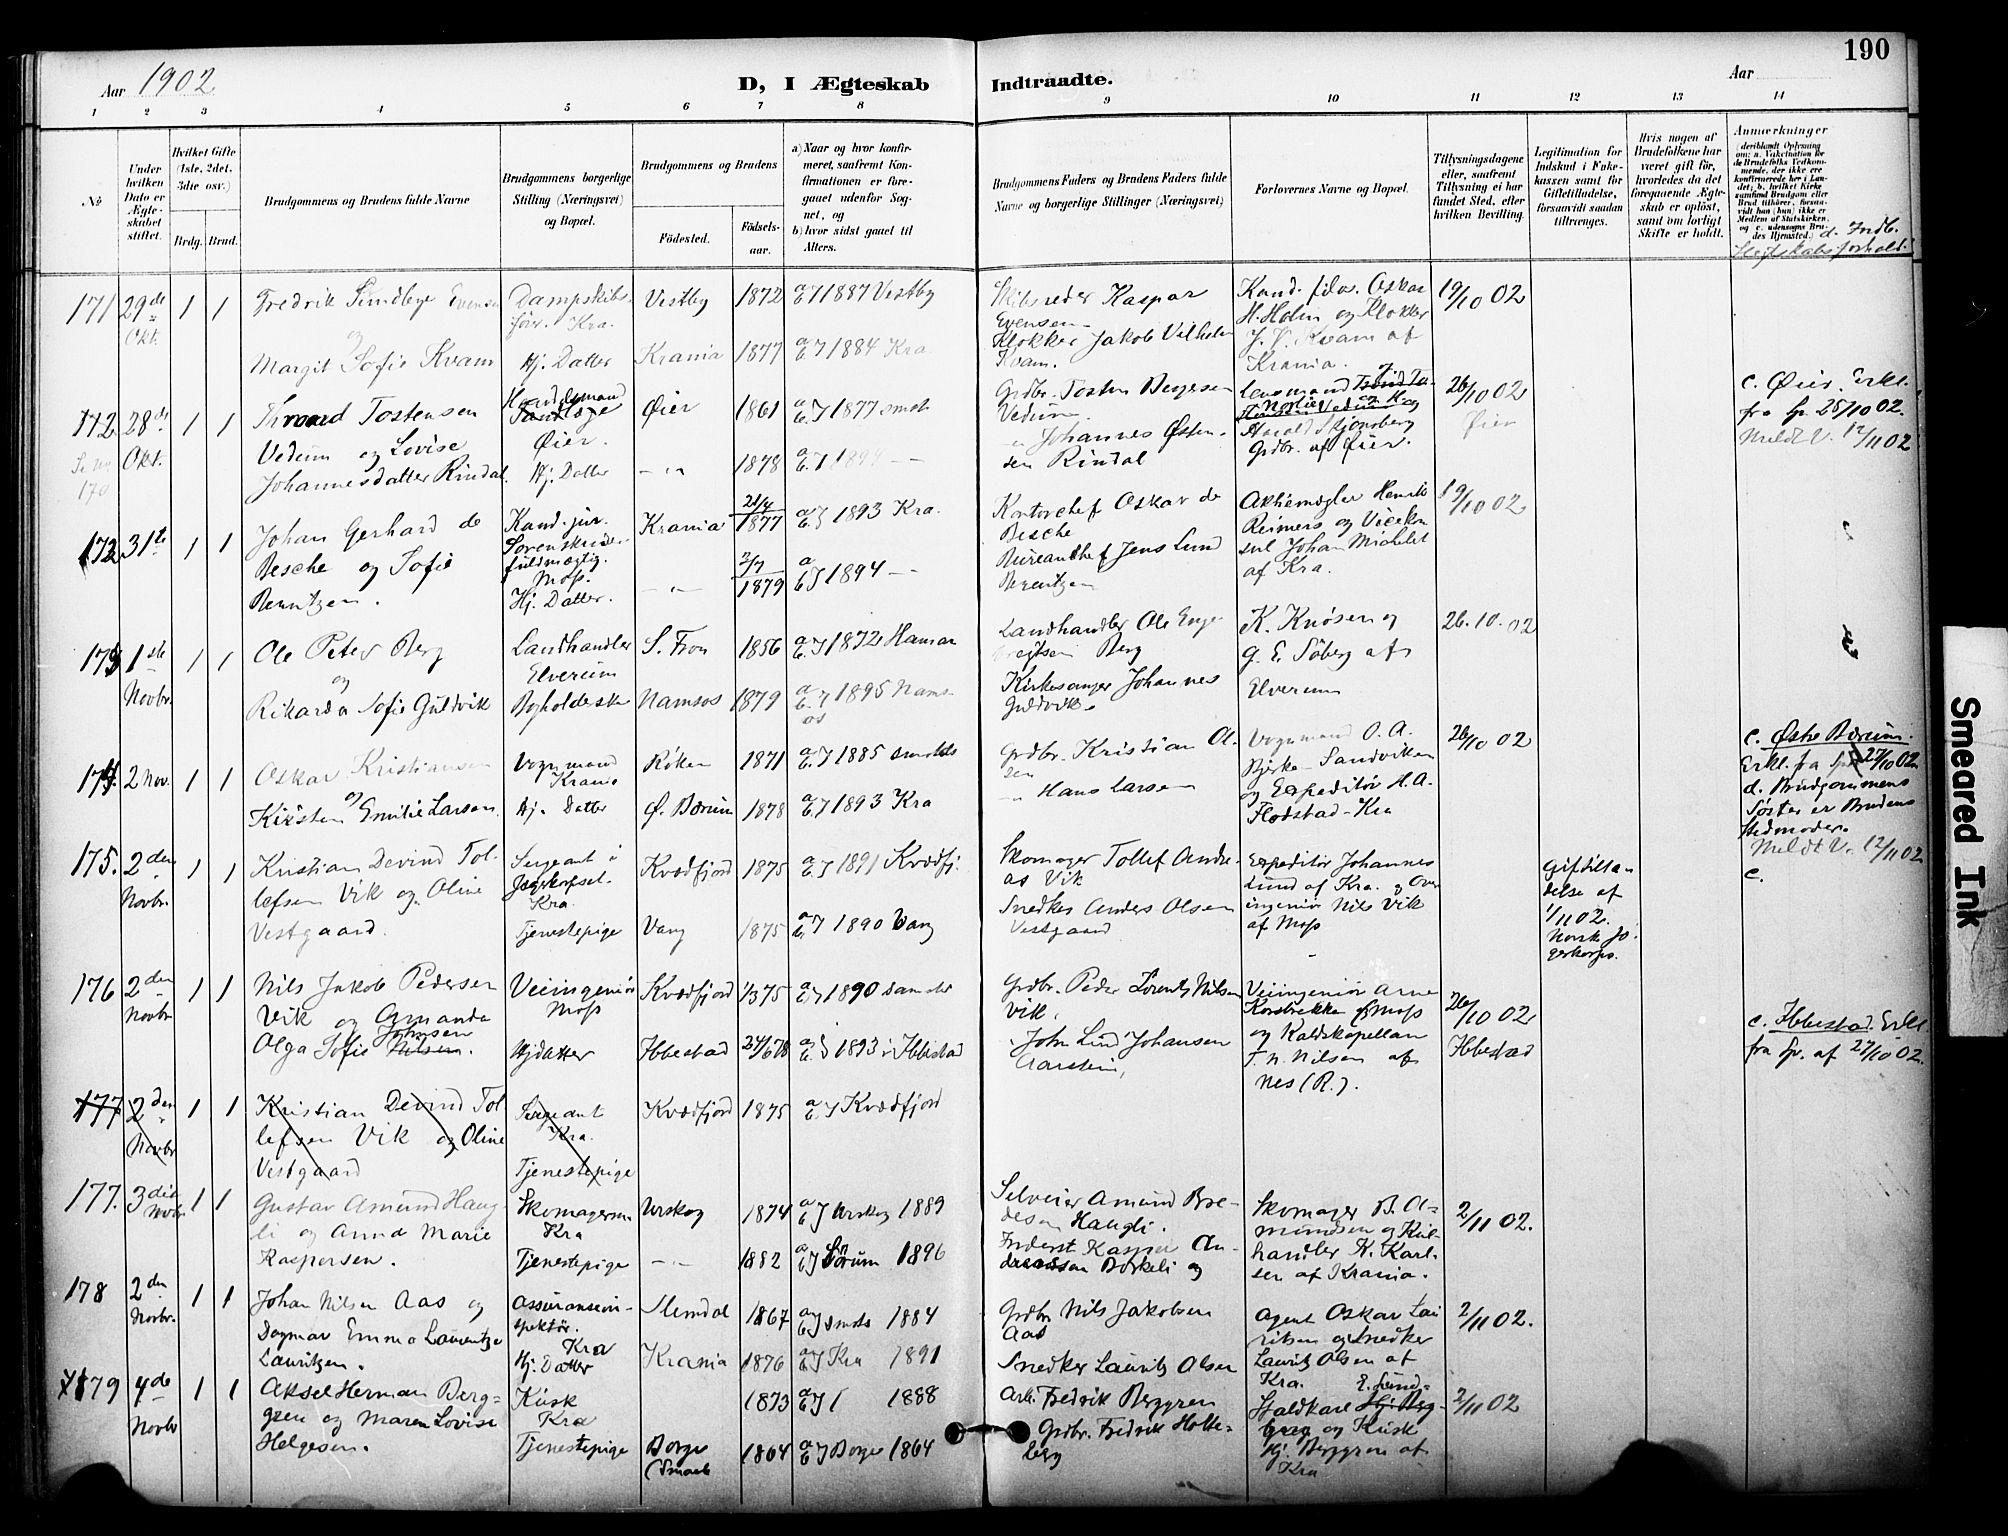 190
Aar 1902
D, I Ægteskab Indtraadte.
Aar
1 2 3 4 5 6 7 8 9 10 11 12 13 14
No
Under hvilken Dato er Ægteskabet stiftet.
Hvilket Gifte (1ste, 2det, 3die osv.)
Brdg. Brud.
Brudgommens og Brudens fulde Navne
Brudgommens borgerlige Stilling (Næringsvei) og Bopæl.
Brudgommens og Brudens
Fødested.
Fødsels-aar.
a) Naar og hvor konfirmeret, saafremt Konfirmationen er foregaaet udenfor Sognet, og
b) hvor sidst gaaet til Alters.
Brudgommens Faders og Brudens Faders fulde Navne og borgerlige Stillinger (Næringsvei)
Forlovernes Navne og Bopæl.
Tillysningsdagene eller, saafremt Tillysning ei har fundet Sted, efter hvilken Bevilling.
Legitimation for Indskud i Enkekassen samt for Giftetilladelse, forsaavidt saadan tiltrænges.
Hvis nogen af Brudefolkene har været gift før, hvorledes da det foregaaende Ægteskab er opløst, samt om lovligt Skifte er holdt.
Anmerkninger (deriblandt Oplysning om: a. Vakcination for de Brudefolks Vedkommende, der ikke ere konfirmerede her i Landet; b. hvilket Kirkesamfund Brudgom eller Brud tilhører, forsaavidt han (hun) ikke er Medlem af Statskirken, og c. udensogns Brudes Hjemsted.) d. Indb. Slegtskabsforhold.
171 29de Okt. 1 1
Fredrik Sundbye Evensen
og
Margit Sofie Kvam
Dampskibsfør. Kra.
Hj. Datter
Vestby 1872 1887 Vestby
Krania 1877 1884 Kra.
Skibsreder Kaspar Evensen
Klokker Jakob Vilhelm Kvam.
Kand. filos. Oskar
H. Holm og Klokker
J. V. Kvam af
Krania.
19/10 02
172 28de Okt. 1 1
170
Thrond Tostensen
Vedum og Lovise
Johannesdatter Rindal.
Handelsmand
Øier.
Hj. Datter
Øier 1861 1877 smst
1878
Grdbr. Tosten Bergersen
Vedum
Johannes Østensen Rindal
Lensmand
Harald Skjønsberg
Grdbr. af Øier.
26/10 02
Øier
c. Øier. Erkl.
fra Sp. 25/10 02.
Meldt V. 12/11 02
172 31te 1 1
Johan Gerhard de
Besche og Sofie
Berntzen.
Kand. jur.
Sorenskriverfuldmægtig.
Moss.
Hj. Datter.
Krania 21/4 1877 1893 Kra.
2/7 1879 1894
Kontorchef Oskar de
Besche
Bureauchef Jens Lund
Berntzen
Aktiemægler Henrik
Reimers og Vicekonsul Johan Michelet
af Kra.
19/10 02
173 1ste Novbr. 1 1
Ole Peter Berg
og
Rikarda Sofie Guldvik
Landhandler
Elverum
Bogholderske
S. Fron 1856 1872 Hamar
Namsos 1879 1895 Namsos
Landhandler Ole Engebregtsen Berg
Kirkesanger Johannes
Guldvik.
K. Knøsen og
G. E. Søberg af
Elverum
26. 10. 02
174. 2 Nov. 1 1
Oskar Kristiansen
og
Kirsten Emilie Larsen.
Vognmand
Krania
Hj. Datter
Røken 1871 1885 smsteds
Ø. Bærum 1878 1893 Kra
Grdbr. Kristian Olsen
Hans Larsen
Vognmand O. A.
Bjerke - Sandviken
og Expeditør H. A.
Flodstad - Kra
26/10 02
c. Østre Bærum.
Erkl. fra Sp. 27/10 02
d. Brudgommens
Søster er Brudens
Stedmoder.
Meldt V. 12/11 02
175. 2den Novbr. 1 1
Kristian Devind Tollefsen Vik og Oline
Vestgaard.
Sergeant i
Jægerkorpset.
Kra.
Tjenestepige
Kvædfjord 1875 1891 Kvædfj.
Vang 1875 1890 Vang
Skomager Tollef Andreas Vik
Snedker Anders Olsen
Vestgaard
Expeditør Johannes
Lund af Kra. og Overingeniør Nils Vik
af Moss
Giftetilladelse af
1/11 02.
Norske Jægerkorps.
c.
176 2den Novbr 1 1
Nils Jakob Pedersen
Vik og Amanda
Olga Sofie Johnsen Nilsen.
Veiingeniør
Moss
Hj datter
Kvædfjord 1/3 75 1890 samsted
Ibbestad 24/6 78 1893 i Ibbestad
Grdbr. Peder Lorents Nilsen
Vik.
John Lind Johansen
Aarstein,
Veiingeniør Arne
Korsbrekke af Moss
og Kaldskapellan
T. N. Nilsen af
Nes (R.).
26/10 02
Ibbestad
c. Ibbestad. Erkl.
fra Sp. af 27/10 02.
177. 2den Novbr 1 1
Kristian Devind Tollefsen Vik og Oline
Vestgaard
Sergeant
Kra.
Tjenestepige
Kvædfjord 1875 Kvædfjord
177. 3die Novbr. 1 1
Gustav Amund Haugli og Anna Marie
Kaspersen.
Skomagersv.
Kra
Tjenestepige
Urskog 1874 Urskog 1889
1882 Sørum 1896
Selveier Amund Bredesen Haugli.
Inderst Kasper Andreassen Borkeli
Skomager B. Amundsen og Kulhandler K. Karlsen af Krania.
2/11 02.
178 2den Novbr. 1 1
Johan Nilsen Aas og
Dagmar Emma Laurentze
Lauritzen.
Assuranseinspektør.
Kra
Hj. Datter
Slemdal 1867 smsts 1884
Krania 1876 Kra 1891
Grdbr Nils Jakobsen
Aas
Snedker Laurits Olsen
Agent Oskar Lauritsen og Snedker
Laurits Olsen af
Kra.
2/11 02.
179 4de Novbr 1 1
Aksel Herman Berggren og Maren Lovise
Helgesen.
Kusk
Kra
Tjenestepige
1873 1888
Borge (Smaal 1864 Borge 1864
Arb. Fredrik Berggren
Grdbr. Fredrik Holteberg
Staldkarl E. Lund-
og Kusk
Hj. Berggren af
Kra
2/11 02
Smeared Ink